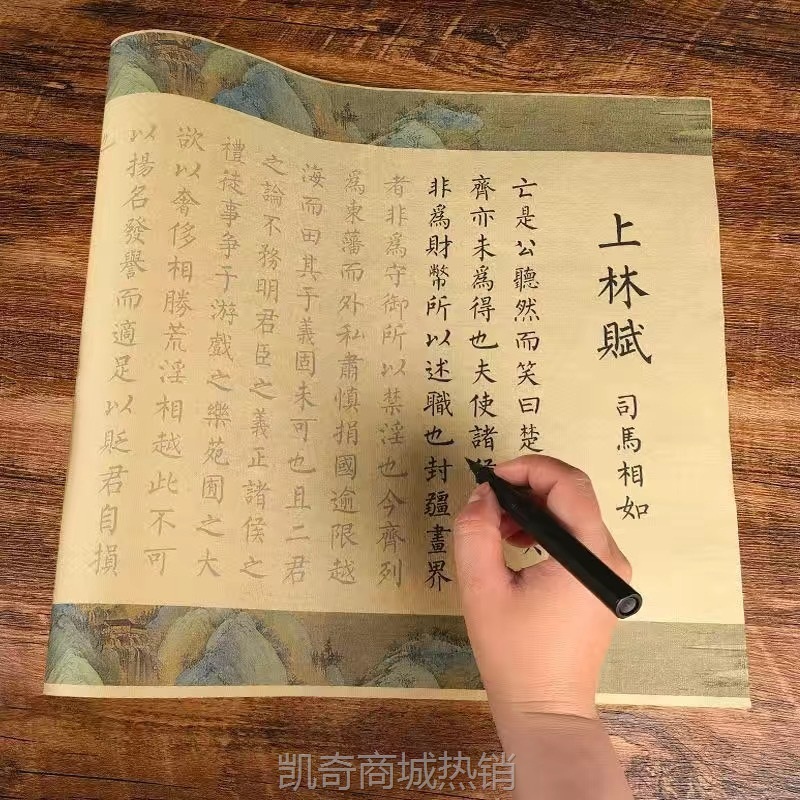 上林賦
司馬相如
亡是公聽然而笑曰楚
齊亦未爲得也夫使諸
非爲財幣所以述職也封疆畫界
者非爲守御所以禁淫也今齊列
爲東藩而外私肅慎捐國逾限越
海而田其于義固未可也且二君
之論不務明君臣之義正諸侯之
禮徒事爭于游戲之樂苑囿之大
欲以奢侈相勝荒淫相越此不可
以揚名發譽而適足以貶君自損
也
凯奇商城热销